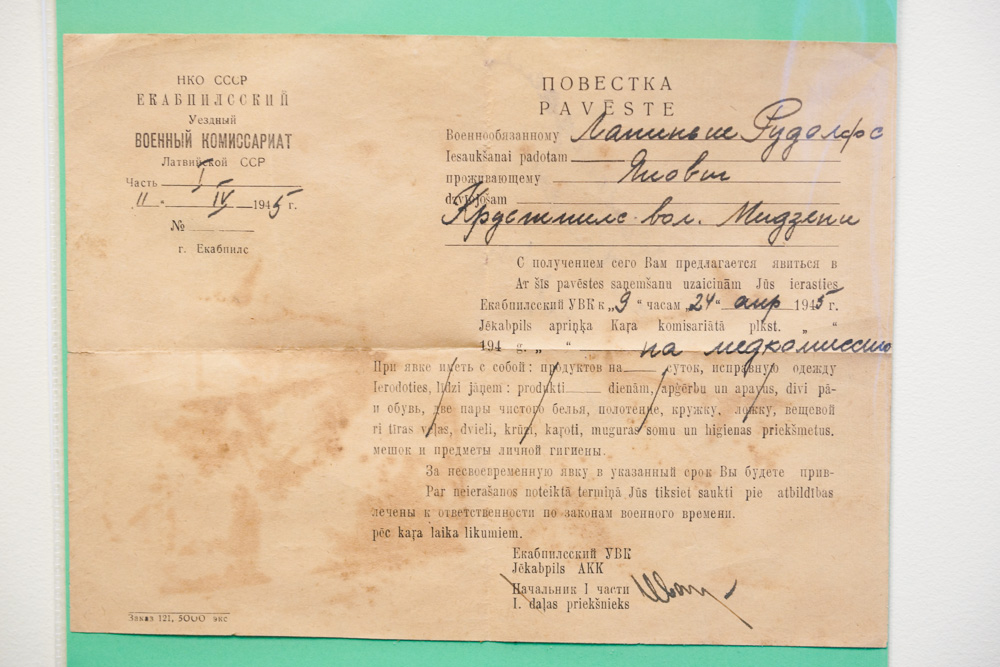 НКО СССР
ЕКАБПИЛССКИЙ
Уездный
ВОЕННЫЙ КОМИССАРИАТ
Латвийской ССР
Часть I
"11" IV 1945 г.
№
г. Екабпилс
Заказ 121, 5000 экс
ПОВЕСТКА
PAVĒSTE
Военнообязанному Лапиньш Рудолфс
Iesaukšanai padotam
проживающему
dzīvojošam
Крустпилс. вол. Мидзени
С получением сего Вам предлагается явиться в
Ar šīs pavēstes saņemšanu uzaicinām Jūs ierasties
Екабпилсский УВК к „9“ часам „24“ апр 1945 г.
Jēkabpils apriņķa Kaŗa komisariātā plkst. „ “
194 g. „ “ на медкомиссию
При явке иметь с собой: продуктов на суток, исправную одежду
Ierodoties, līdzi jāņem: produkti dienām, apģērbu un apavus, divi pā-
и обувь, две пары чистого белья, полотенце, кружку, ложку, вещевой
ri tīras veļas, dvieli, krūzi, kaŗoti, muguras somu un higienas priekšmetus.
мешок и предметы личной гигиены.
За несвоевременную явку в указанный срок Вы будете прив-
Par neierašanos noteiktā termiņā Jūs tiksiet saukti pie atbildības
лечены к ответственности по законам военного времени.
pēc kaŗa laika likumiem.
Екабпилсский УВК
Jēkabpils AKK
Начальник I части
I. daļas priekšnieks